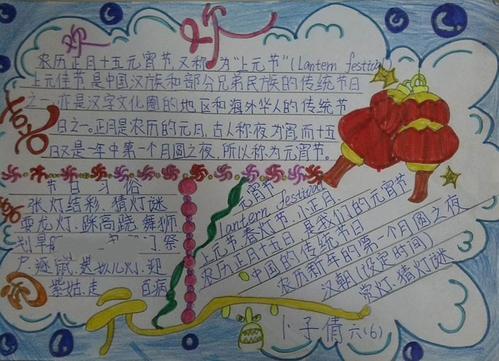 欢
农历正月十五元宵节,又称为“上元节”(Lantern festival)
上元佳节是中国汉族和部分兄弟民族的传统节日
之一,亦是汉字文化圈的地区和海外华人的传统节
日之一。正月是农历的元月,古人称夜为宵而十五
日又是一年中第一个月圆之夜,所以称为元宵节。
节日习俗
张灯结彩、猜灯谜
耍龙灯、踩高跷、舞狮
划旱 祭
户、逐鼠、送 儿灯、迎
紫姑、走 百病
元宵节
Lantern festival
上元节、春灯节、小正月、
农历正月十五日 是我们的元宵节
中国的传统节日
农历新年的第一个月圆之夜
汉朝(设定时间)
赏灯、猜灯谜
卜子倩 六(6)